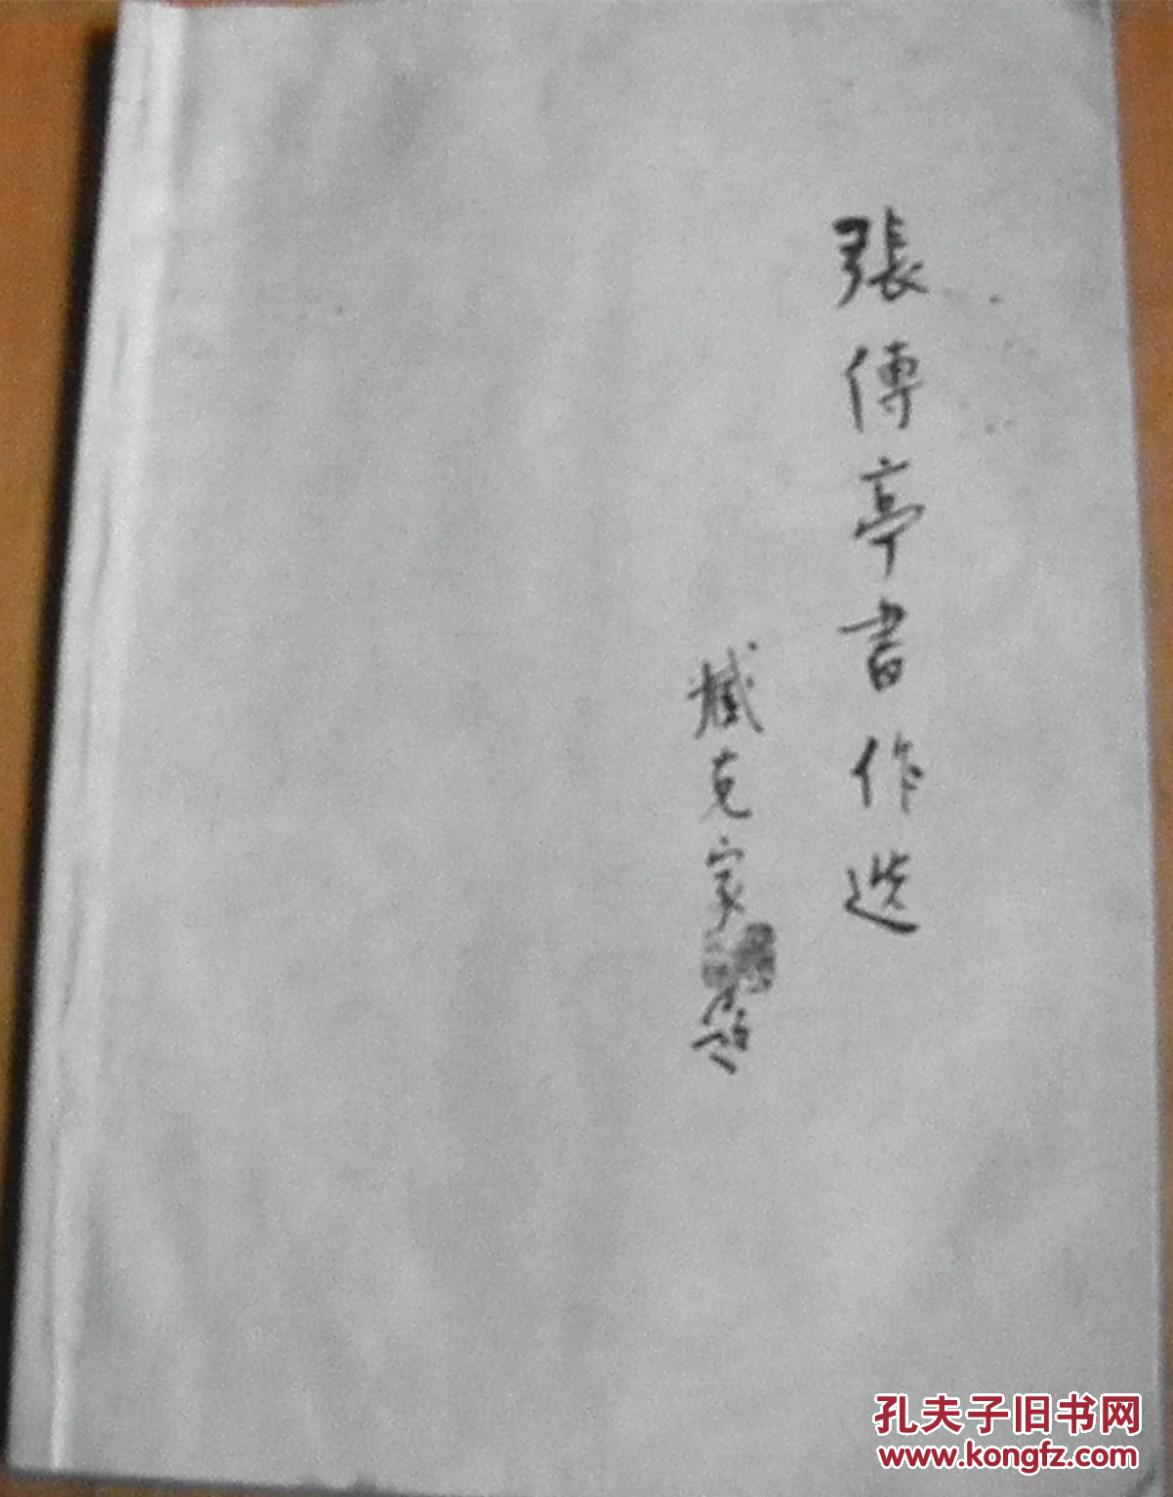 張傳亭書作选
臧克家
孔夫子旧书网
www.kongfz.com